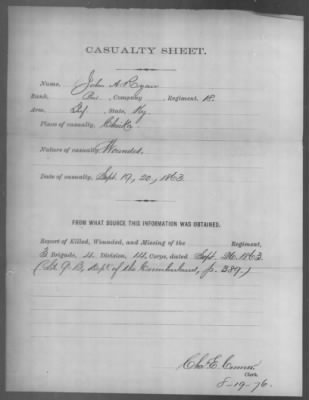 CASUALTY SHEET.
Name, John A. Ryan
Rank, Pvi. Company , Regiment, 18.
Arm, Inf. State, Ky
Place of casualty,
Nature of casualty, Wounded.
Date of casualty, Sept. 19, 20, 1863.
FROM WHAT SOURCE THIS INFORMATION WAS OBTAINED.
Report of Killed, Wounded, and Missing of the Regiment,
3 Brigade, 4 Division, 14 Corps, dated Sept. 26 1863
Dept. of the Cumberland, p. 389.)
Chas. E.
Clerk.
8-19-76.